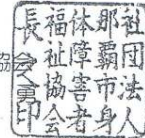 社団法人
那覇市身
体障害者
福祉協会
長印
協